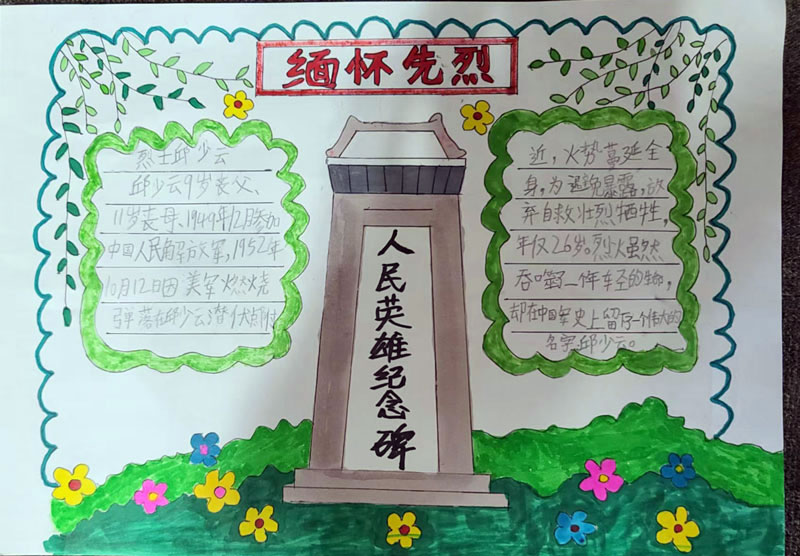 缅怀先烈
烈士邱少云
邱少云9岁丧父、
11岁丧母、1949年12月参加
中国人民解放军,1952年
10月12日因美军燃烧
弹落在邱少云潜伏点附
近,火势蔓延全
身,为避免暴露,放
弃自救壮烈牺牲,
年仅26岁。烈火虽然
吞噬了一个年轻的生命,
却在中国军史上留存一个伟大的
名字邱少云。
人民英雄纪念碑